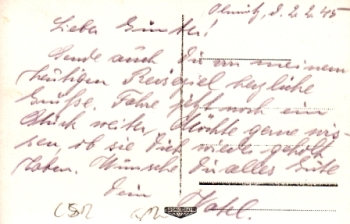 Olmütz, d. 2.2.45
Lieber Günther!
Sende auch Dir von meinem
heutigen Reiseziel herzliche
Grüße. Fahre jetzt noch ein
Stück weiter. Möchte gerne wis-
sen, ob sie Dich wieder geholt
haben. Wünsche Dir alles Gute
Dein